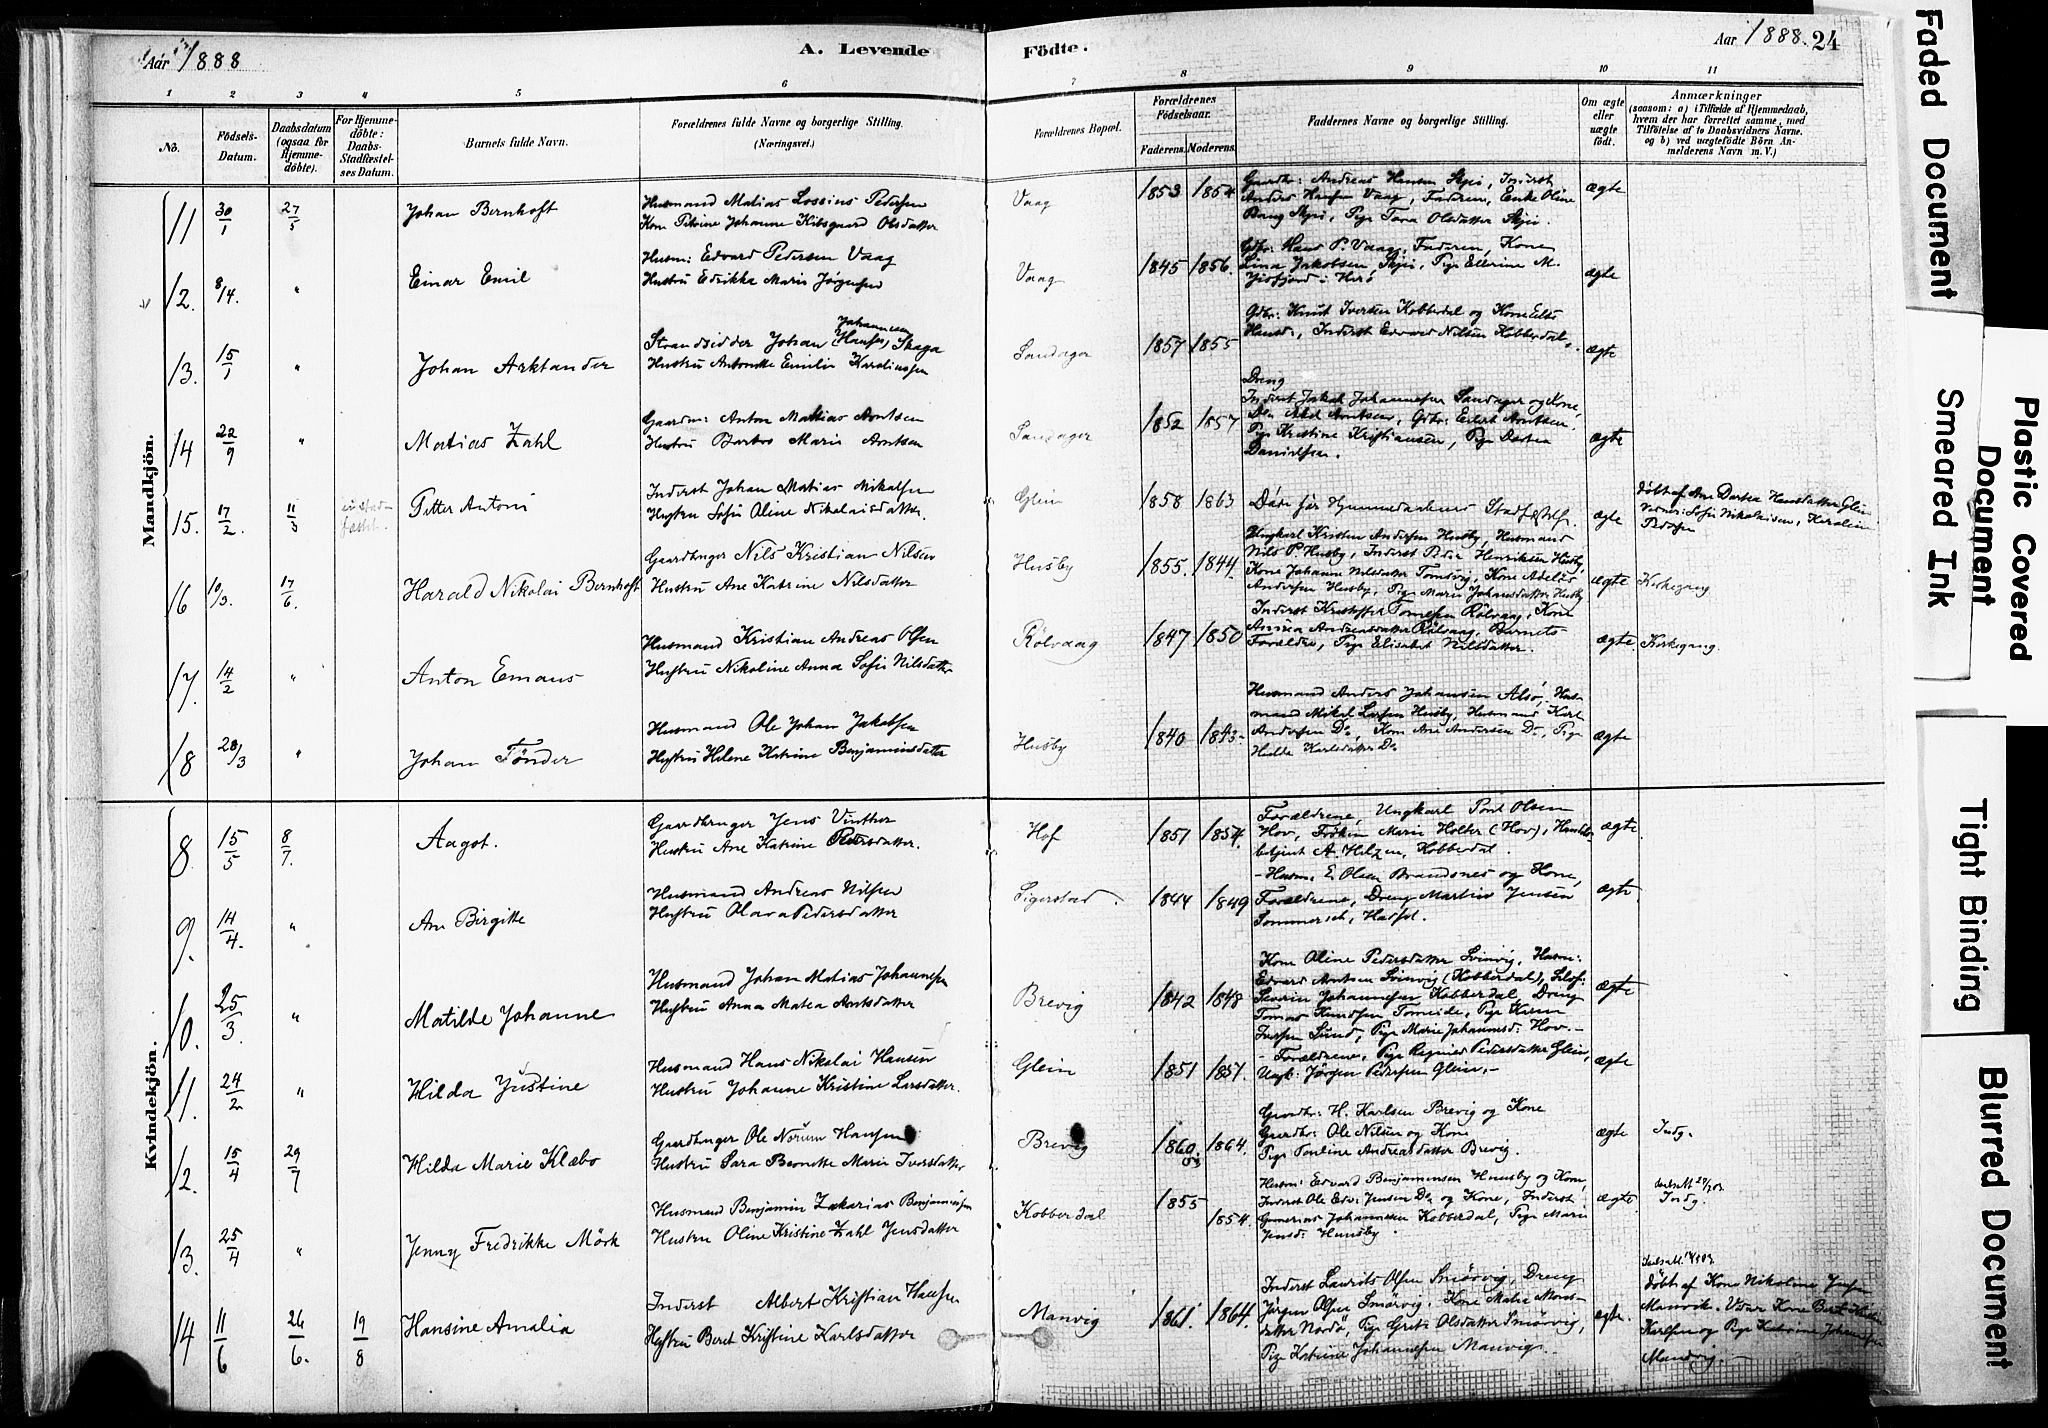 Aar 1888
A. Levende
Födte.
Aar 1888. 24
1 2 3 4 5 6 7 8 9 10 11
No.
Födsels-
Datum.
Daabsdatum
(ogsaa for
Hjemme-
döbte).
For Hjemme-
döbte:
Daabs-
Stadfæstel-
ses Datum.
Barnets fulde Navn.
Forældrenes fulde Navne og borgerlige Stilling.
(Næringsvei.)
Forældrenes Bopæl.
Forældrenes
Födselsaar.
Faderens. Moderens.
Faddernes Navne og borgerlige Stilling.
Om ægte
eller
uægte
födt.
Anmærkninger
(saasom: a) i Tilfælde af Hjemmedaab,
hvem der har forrettet samme, med
Tilföielse af to Daabsvidners Navne.
og b) ved uægtefödte Börn An-
melderens Navn m. V.)
Mandkjön.
11 30/1 27/5 Johan Bernhoft
Husmand Matias Lossius Pedersen
Kone Petrine Johanne Kibsgaard Olsdatter
Vaag 1853 1854
Gaardbr: Andreas Hansen Skjei, Inderst
Anders Hansen Vaag, Faderen, Enke Oline
Bang Skjei, Pige Tara Olsdatter Skjei.
ægte
12. 8/4. " Einar Emil
Husm: Edvard Pedersen Vaag
Hustru Edrikke Marie Jørgensen
Vaag 1845 1856.
Gdbr: Hans P. Vaag, Faderen, Kone
Lina Jakobsen, Skjei, Pige Ellerine M.
ægte
13. 15/1 " Johan Arktander
Johannesen
Strandsidder Johan (Hansen) Skaga
Hustru Antonette Emilie Karoliussen
Sandager 1857 1855
Gdbr: Knud Iversen Kobberdal og Kone Else
Hansd:, Inderst Edvard Nilsen Kobberdal,
ægte
14 22/9 " Matias Zahl
Gaardm: Anton Mathias Arntsen
Hustru Barbro Marie Arntsen
Sandager 1852 1857
Dreng
Inderst Jakob Johannesen Sandager og Kone,
Arntsen, Gdbr: Edert Arntsen,
Pige Kristine Kristiansen, Pige Dortea
Danielsen.
ægte
15. 17/2. 11/3 Petter Antoni
Inderst Johan Matias Mikalsen
Hustru Sofie Oline Nikolaisdatter.
Glein 1858 1863
Døde før Hjemmedaabens Stadfæstelse
ægte
døbt af Ane Dortea Hansdatter Glein
Vidner: Sofie Nikolaisen, Karoline
Pedersen
16 10/3. 17/6. Harald Nikolai Bernhoft
Gaardbruger Nils Kristian Nilsen
Hustru Ane Katrine Nilsdatter
Husby 1855. 1844.
Ungkarl Kristen Andersen Husby, Husmand
Nils P. Husby, Inderst Peder Henriksen Husby,
Kone Johanna Nilsdatter Tomsvig, Kone Adelus
Andersen Husby, Pige Marie Johansdatter Husby
ægte Kirkegang
17. 14/2 " Anton Emaus
Husmand Kristian Andreas Olsen
Hustru Nikoline Anna Sofie Nilsdatter
Rölvaag 1847 1850
Inderst Kristoffer Tomesen Rölvaag, Kone
Anna Andreasdatter Rölvaag, Barnets
Forældre, Pige Elisabet Nilsdatter.
ægte Kirkegang.
18 28/3 " Johan Tönder
Husmand Ole Johan Jakobsen
Hustru Helene Katrine Benjaminsdatter
Husby 1840 1843-
Husmand Anders Johansen Alsö, Hus-
mand Mikal Larsen Husby, Husmand Karl
Andersen Do, Kone Ane Andersen Do, Pige
Hilde Karlsdatter Do
ægte
Kvindekjön.
8. 15/5 8/7. Aagot.
Gaardbruger Jens Vinther
Hustru Ane Katrine Pedersdatter.
Hof 1851 1854.
Forældrene, Ungkarl Pont Olsen
Hov, Frøken Marie Holter (Hov), Handels-
betjent A. Hilzen, Kobberdal.
ægte
9. 14/4. " Ane Birgitte
Husmand Andreas Nilsen
Hustru Olava Pedersdatter
Sigerstad 1844 1849
- Husm: E. Olsen Brandsnes og Kone,
Forældrene, Dreng Martin Jensen
Sommersch, Hadsel.
ægte
10. 25/3. " Matilde Johanne
Husmand Johan Matias Johannesen
Hustru Anna Matea Arntsdatter
Brevig 1842 1848
Kone Oline Pedersdatter Svinvig, Husm:
Edvard Arntsen Svinvig (Kobberdal),
Severin Johannesen Kobberdal, Dreng
Tomas Knudsen Tomeide, Pige Karen
Jensen Lund, Pige Marie Johannesd. Hov. -
ægte
11. 24/2 " Hilda Justine
Husmand Hans Nikolai Hansen
Hustru Johanne Kristine Larsdatter.
Glein 1851 1857.
- Forældrene, Pige Regined Pedersdatter Glein,
Ungk: Jörgen Pedersen Glein. -
ægte
12. 15/4 29/7 Hilda Marie Klæbo
Gaardbruger Ole Norum Hansen
Hustru Sara Bernette Marie Iversdatter
Brevig 1860 1864.
Gaardbr: H. Karlsen Brevig og Kone
Gaardbr: Ole Nilsen og Kone
Pige Pauline Andreasdatter Brevig.
ægte Indg.
13. 25/4 " Jenny Fredrikke Mörk
Husmand Benjamin Zakarias Benjaminsen
Hustru Oline Kristine Zahl Jensdatter
Kobberdal 1855 1854.
Husm: Edvard Benjaminsen Huusby og Kone,
Inderst Ole Edv: Jensen Do og Kone, Inderst
Gunerius Johannessen Kobberdal, Pige Marie
Jensd: Huusby.
ægte.
Indg.
14 11/6 26/6. 19/8 Hansine Amalia
Inderst Albert Kristian Hansen
Hustru Beret Kristine Karlsdatter
Manvig 1861. 1864.
Inderst Laurits Olsen Smörvig, Dreng
Jörgen Olsen Smörvig, Kone Matea Mons-
datter Nordö, Pige Grete Olsdatter Smörvig,
Pige Katrine Johannesen Manvig. -
ægte.
döbt af Kone Nikoline Jensen
Manvik. Vidner Kone Beret
Karlsen og Pige Katrine Johannesen
Mandvig. -
Faded Document
Smeared Ink
Plastic Covered
Document
Tight Binding
Blurred Document